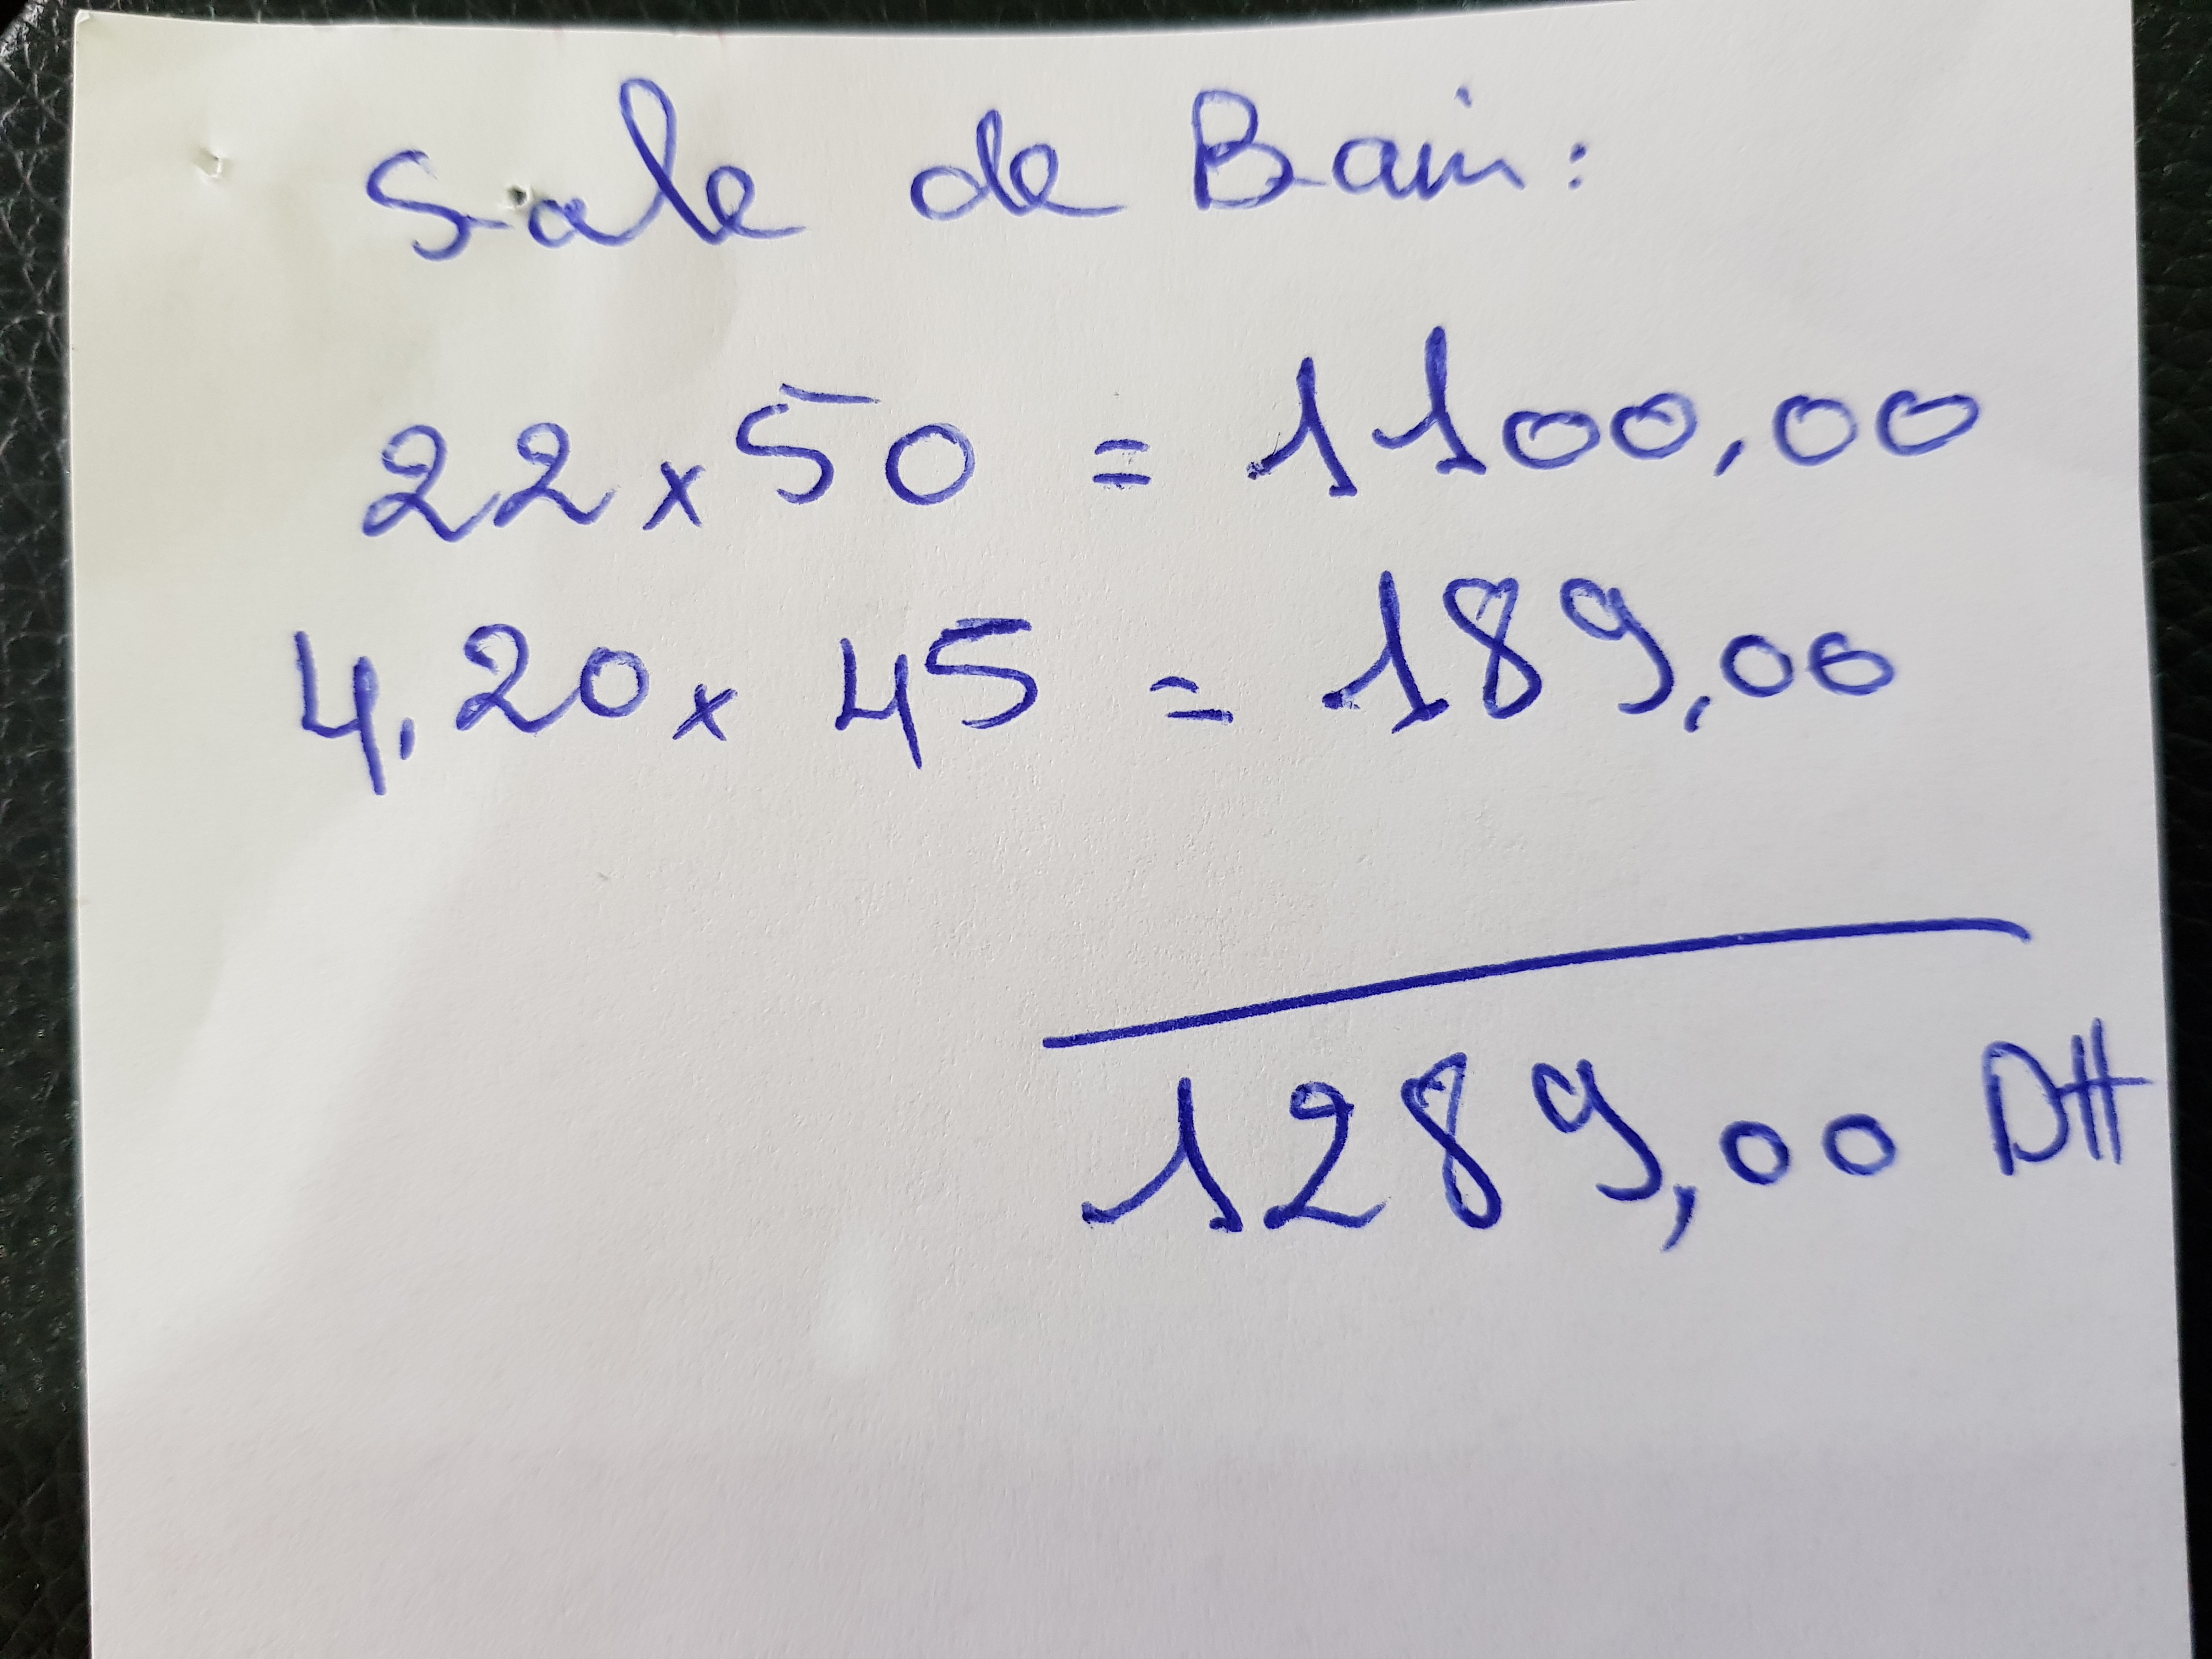 Sale de Bain :
22 x 50 = 1100,00
4,20 x 45 = 189,00
1289,00 DH